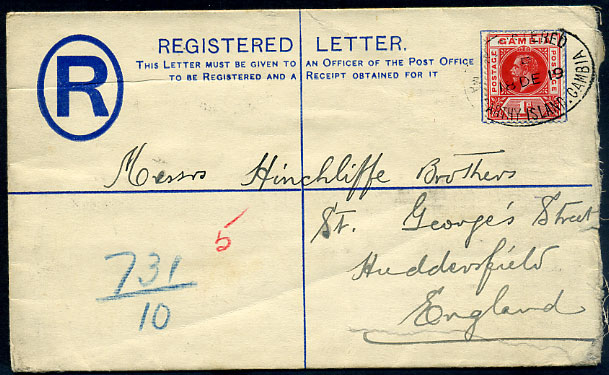 REGISTERED LETTER.
THIS LETTER MUST BE GIVEN TO AN OFFICER OF THE POST OFFICE
TO BE REGISTERED AND A RECEIPT OBTAINED FOR IT
R
GAMBIA
POSTAGE
POSTAGE
DE 19
ISLAND. GAMBIA
Messrs Hinchliffe Brothers
St. George's Street
Huddersfield
England
5
731
10